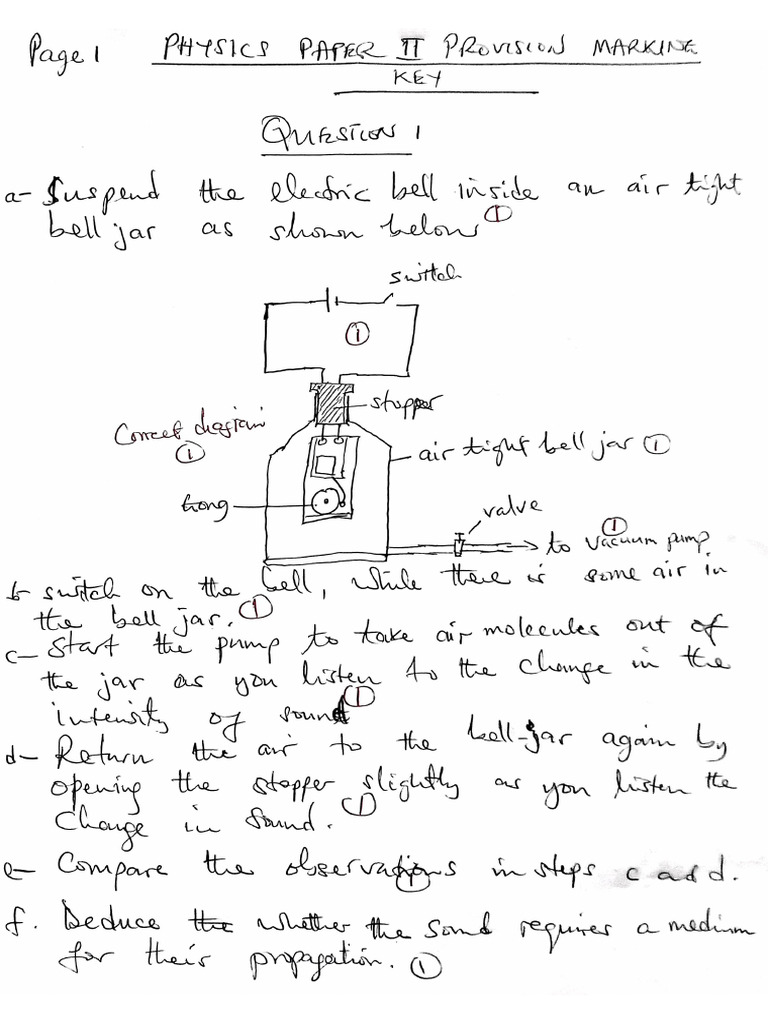 Page 1 PHYSICS PAPER II PROVISION MARKING
KEY
QUESTION 1
a- Suspend the electric bell inside an air tight
bell jar as shown below ①
switch
①
stopper
Correct diagram
①
air tight bell jar ①
gong
valve
①
to vacuum pump
b- switch on the bell, while there is some air in
the bell jar. ①
c- Start the pump to take air molecules out of
the jar as you listen to the change in the
intensity of sound ①
d- Return the air to the bell-jar again by
opening the stopper slightly as you listen the
change in sound. ①
e- Compare the observations in steps c and d.
①
f. Deduce the whether the sound requires a medium
for their propagation. ①